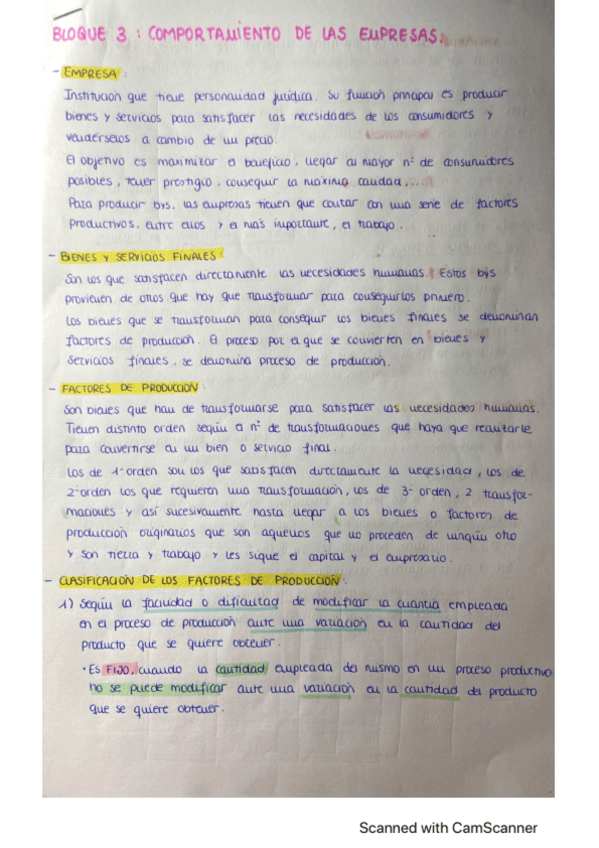 BLOQUE 3 : COMPORTAMIENTO DE LAS EMPRESAS.
- EMPRESA :
Institución que tiene personalidad jurídica. Su función principal es producir
bienes y servicios para satisfacer las necesidades de los consumidores y
vendérselos a cambio de un precio.
El objetivo es maximizar el beneficio, llegar al mayor nº de consumidores
posibles, tener prestigio, conseguir la máxima calidad,...
Para producir bys, las empresas tienen que contar con una serie de factores
productivos, entre ellos y el más importante, el trabajo.
- BIENES Y SERVICIOS FINALES :
Son los que satisfacen directamente las necesidades humanas. Estos bys
provienen de otros que hay que transformar para conseguirlos primero.
Los bienes que se transforman para conseguir los bienes finales se denominan
factores de producción. El proceso por el que se convierten en bienes y
servicios finales, se denomina proceso de producción.
- FACTORES DE PRODUCCIÓN :
Son bienes que han de transformarse para satisfacer las necesidades humanas.
Tienen distinto orden según el nº de transformaciones que haya que realizarle
para convertirse en un bien o servicio final.
Los de 1º orden son los que satisfacen directamente la necesidad, los de
2º orden los que requieren una transformación, los de 3º orden, 2 transfor-
maciones y así sucesivamente hasta llegar a los bienes o factores de
producción originarios que son aquellos que no proceden de ningún otro
y son tierra y trabajo y les sigue el capital y el empresario.
- CLASIFICACIÓN DE LOS FACTORES DE PRODUCCIÓN :
1) Según la facilidad o dificultad de modificar la cuantía empleada
en el proceso de producción ante una variación en la cantidad del
producto que se quiere obtener.
· Es FIJO, cuando la cantidad empleada del mismo en un proceso productivo
no se puede modificar ante una variación en la cantidad del producto
que se quiere obtener.
Scanned with CamScanner